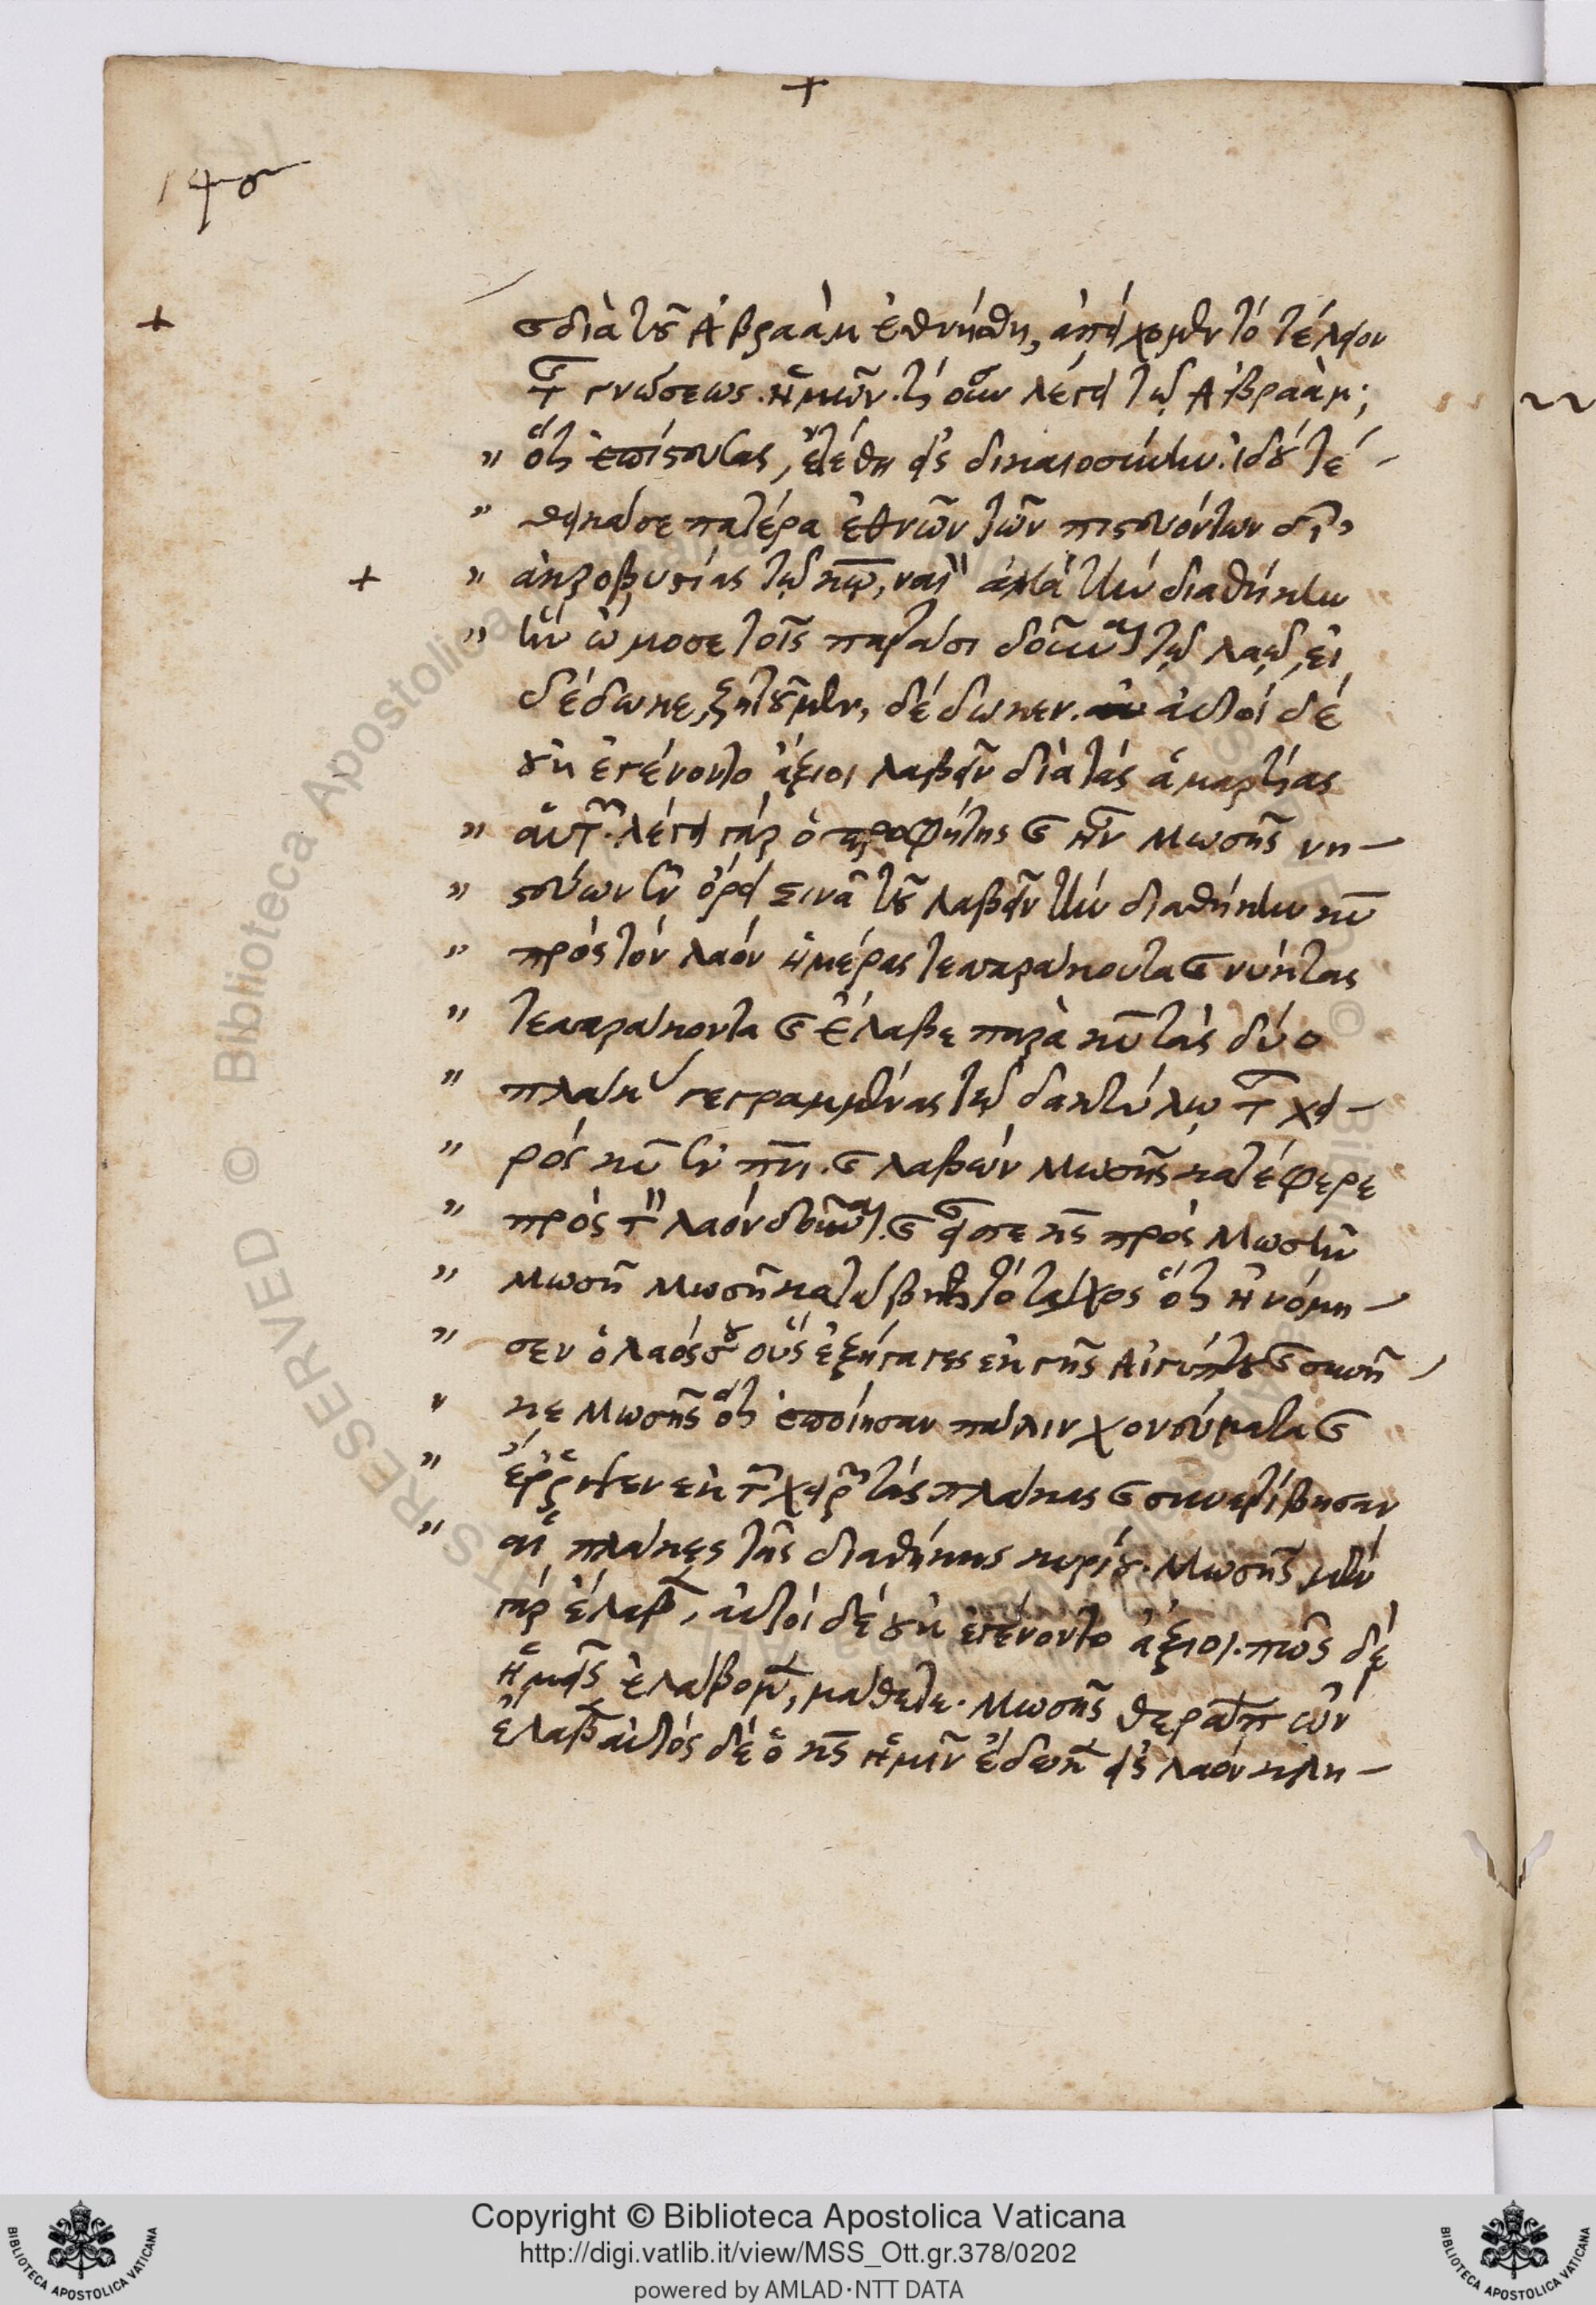 +
14
ϗ διὰ τοῦ Ἀβραὰμ ἐθνήθη, ἀπέχομεν τὸ τέλειον
τῆς γνώσεως ἡμῶν. τί οὖν λέγει τῷ Ἀβραάμ;
" ὅτι ἐπίστευσας, ἐτέθη εἰς δικαιοσύνην. ἰδοὺ τέ-
" θεικά σε πατέρα ἐθνῶν τῶν πιστευόντων δι'
+ " ἀκροβυστίας τῷ κω̅, ναὶ ἀλλὰ τὴν διαθήκην
" ἣν ὤμοσε τοῖς πατράσι δοῦναι τῷ λαῷ, εἰ
δέδωκε, ζητοῦμεν, δέδωκεν. αὐτοὶ δὲ
οὐκ ἐγένοντο ἄξιοι λαβεῖν διὰ τὰς ἁμαρτίας
" αὐτῶν. λέγει γὰρ ὁ προφήτης ϗ ἦν Μωσῆς νη-
" στεύων ἐν ὄρει Σινᾶ τοῦ λαβεῖν τὴν διαθήκην κυ̅
" πρὸς τὸν λαὸν ἡμέρας τεσσαράκοντα ϗ νύκτας
" τεσσαράκοντα ϗ ἔλαβε παρὰ κυ̅ τὰς δύο
" πλάκας γεγραμμένας τῷ δακτύλῳ τῆς χει-
" ρὸς κυ̅ ἐν πνι̅. ϗ λαβὼν Μωσῆς κατέφερε
" πρὸς τὸν λαὸν δοῦναι. ϗ εἶπε κς̅ πρὸς Μωσῆν
" Μωσῆ Μωσῆ κατάβηθι τὸ τάχος ὅτι ἠνόμη-
" σεν ὁ λαός σου οὓς ἐξήγαγες ἐκ γῆς Αἰγύπτου ϗ συνῆ
" κε Μωσῆς ὅτι ἐποίησαν πάλιν χονεύματα ϗ
" ἔρριψεν ἐκ τῶν χειρῶν τὰς πλάκας ϗ συνετρίβησαν
" αἱ πλάκες τῆς διαθήκης κυρίου. Μωσῆς μὲν
γὰρ ἔλαβεν, αὐτοὶ δὲ οὐκ ἐγένοντο ἄξιοι. πῶς δὲ
ἡμεῖς ἐλάβομεν, μάθετε. Μωσῆς θεράπων ὢν
ἔλαβεν αὐτὸς δὲ ὁ κς̅ ἡμῖν ἔδωκεν εἰς λαὸν κλη-
+
Copyright © Biblioteca Apostolica Vaticana
http://digi.vatlib.it/view/MSS_Ott.gr.378/0202
powered by AMLAD·NTT DATA